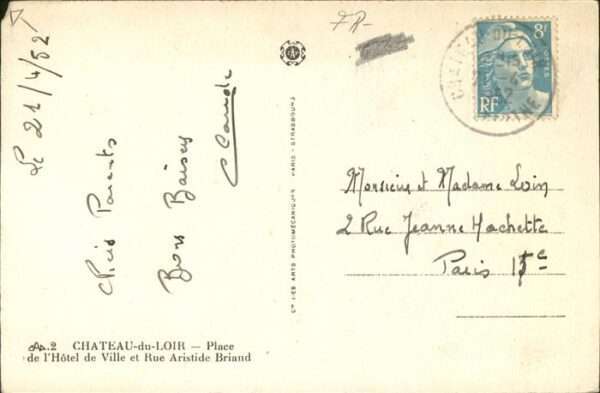 Le 21/4/52
Chers Parents
Bons Baisers
Claude
FR-
8F
RF
CIE DES ARTS PHOTOMÉCANIQUES PARIS - STRASBOURG
Monsieur et Madame Loin
2 Rue Jeanne Hachette
Paris 15e
2 CHATEAU-du-LOIR — Place
de l'Hôtel de Ville et Rue Aristide Briand